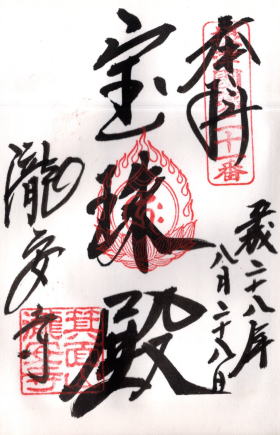 奉拝
平成二十八年
八月二十八日
宝珠殿
瀧安寺
箕面山
瀧安寺